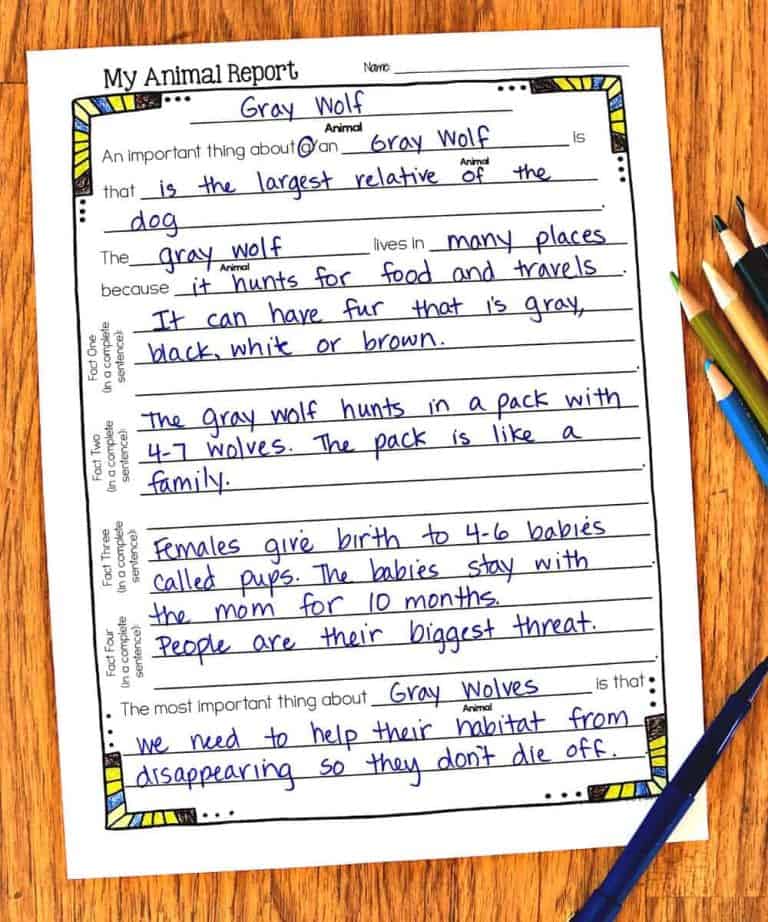 My Animal Report
Name
Gray Wolf
Animal
An important thing about a/an Gray Wolf is
Animal
that is the largest relative of the
dog.
The gray wolf lives in many places
Animal
because it hunts for food and travels.
Fact One
(in a complete
sentence):
It can have fur that is gray,
black, white or brown.
Fact Two
(in a complete
sentence):
The gray wolf hunts in a pack with
4-7 wolves. The pack is like a
family.
Fact Three
(in a complete
sentence):
Females give birth to 4-6 babies
called pups. The babies stay with
the mom for 10 months.
Fact Four
(in a complete
sentence):
People are their biggest threat.
The most important thing about Gray Wolves is that
Animal
we need to help their habitat from
disappearing so they don't die off.